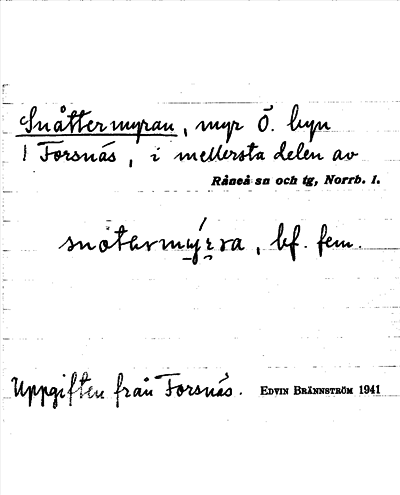 Snåttermyran, myr Ö. byn
Forsnäs, i mellersta delen av
Råneå sn och tg, Norrb. l.
bf. fem.
Uppgiften från Forsnäs. EDVIN BRÄNNSTRÖM 1941